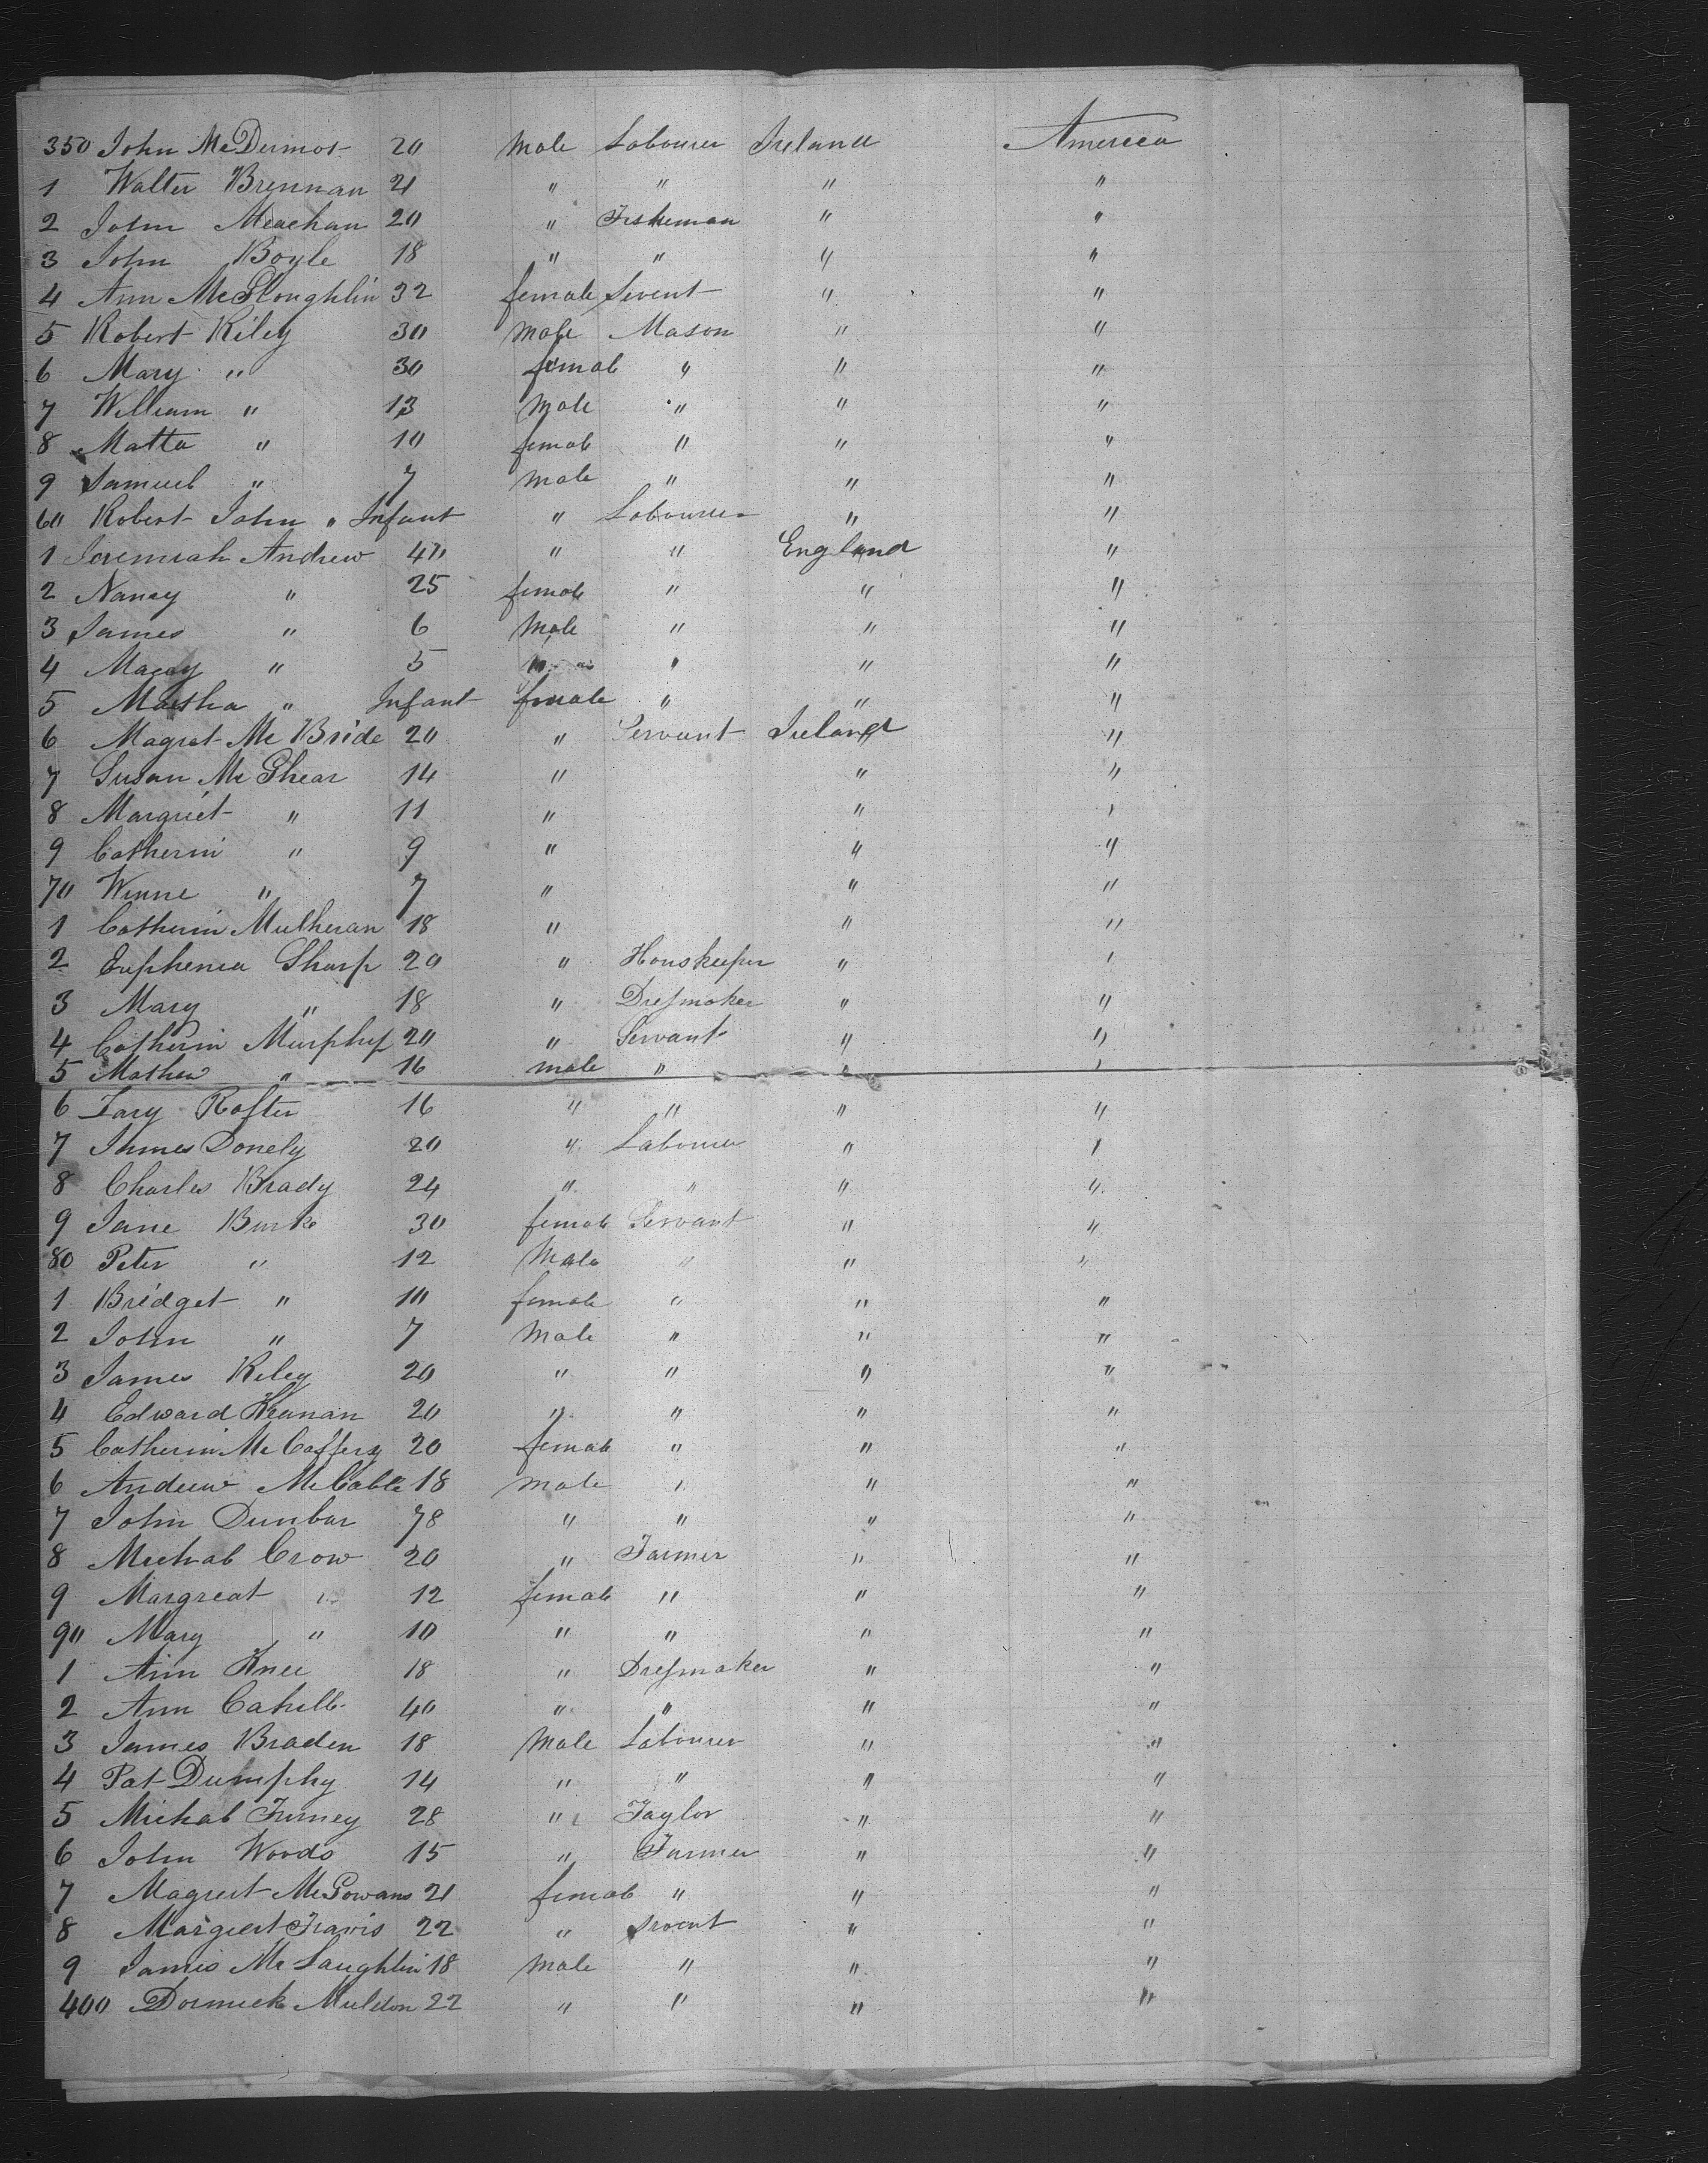 350 John McDermot 20 Male Labourer Ireland America
1 Walter Brennan 21 " " " "
2 John Meachan 20 " Fisheman " "
3 John Boyle 18 " " " "
4 Ann McGloughlin 32 female Servent " "
5 Robert Riley 30 Male Mason " "
6 Mary " 30 female " " "
7 William " 13 Male " " "
8 Matta " 10 female " " "
9 Samuel " 7 Male " " "
60 Robert John " Infant " Labourer " "
1 Jeremiah Andrew 40 " " England "
2 Nancy " 25 female " " "
3 James " 6 Male " " "
4 " 5 " " "
5 Martha " Infant female " " "
6 Magret McBride 20 " Servant Ireland "
7 Susan McGhear 14 " " "
8 Margriet " 11 " " "
9 Catherin " 9 " " "
70 Winne " 7 " " "
1 Catherin Mulheran 18 " " "
2 Euphenia Sharp 20 " Houskeeper " "
3 Mary " 18 " Dressmaker " "
4 Catherin Murphy 20 " Servant " "
5 Mathew " 16 male " " "
6 Rafter 16 " " " "
7 James Donely 20 " Labourer " "
8 Charles Brady 24 " " " "
9 Jane Burke 30 female Servant " "
80 Peter " 12 Male " " "
1 Bridget " 10 female " " "
2 John " 7 Male " " "
3 James Riley 20 " " " "
4 Edward Keanan 20 " " " "
5 Catherin McCaffery 20 female " " "
6 Andrew McCable 18 Male " " "
7 John Dunbar 78 " " " "
8 Michal Crow 20 " Farmer " "
9 Margreat " 12 female " " "
90 Mary " 10 " " " "
1 Ann Knee 18 " Dressmaker " "
2 Ann Cahill 40 " " " "
3 James Braden 18 Male Labourer " "
4 Pat Dumphy 14 " " " "
5 Michal Furney 28 " Taylor " "
6 John Woods 15 " Farmer " "
7 Magreet McGowans 21 female " " "
8 Margeret Travis 22 " Srvent " "
9 James McLaughlin 18 Male " " "
400 Dormick Muldon 22 " " " "